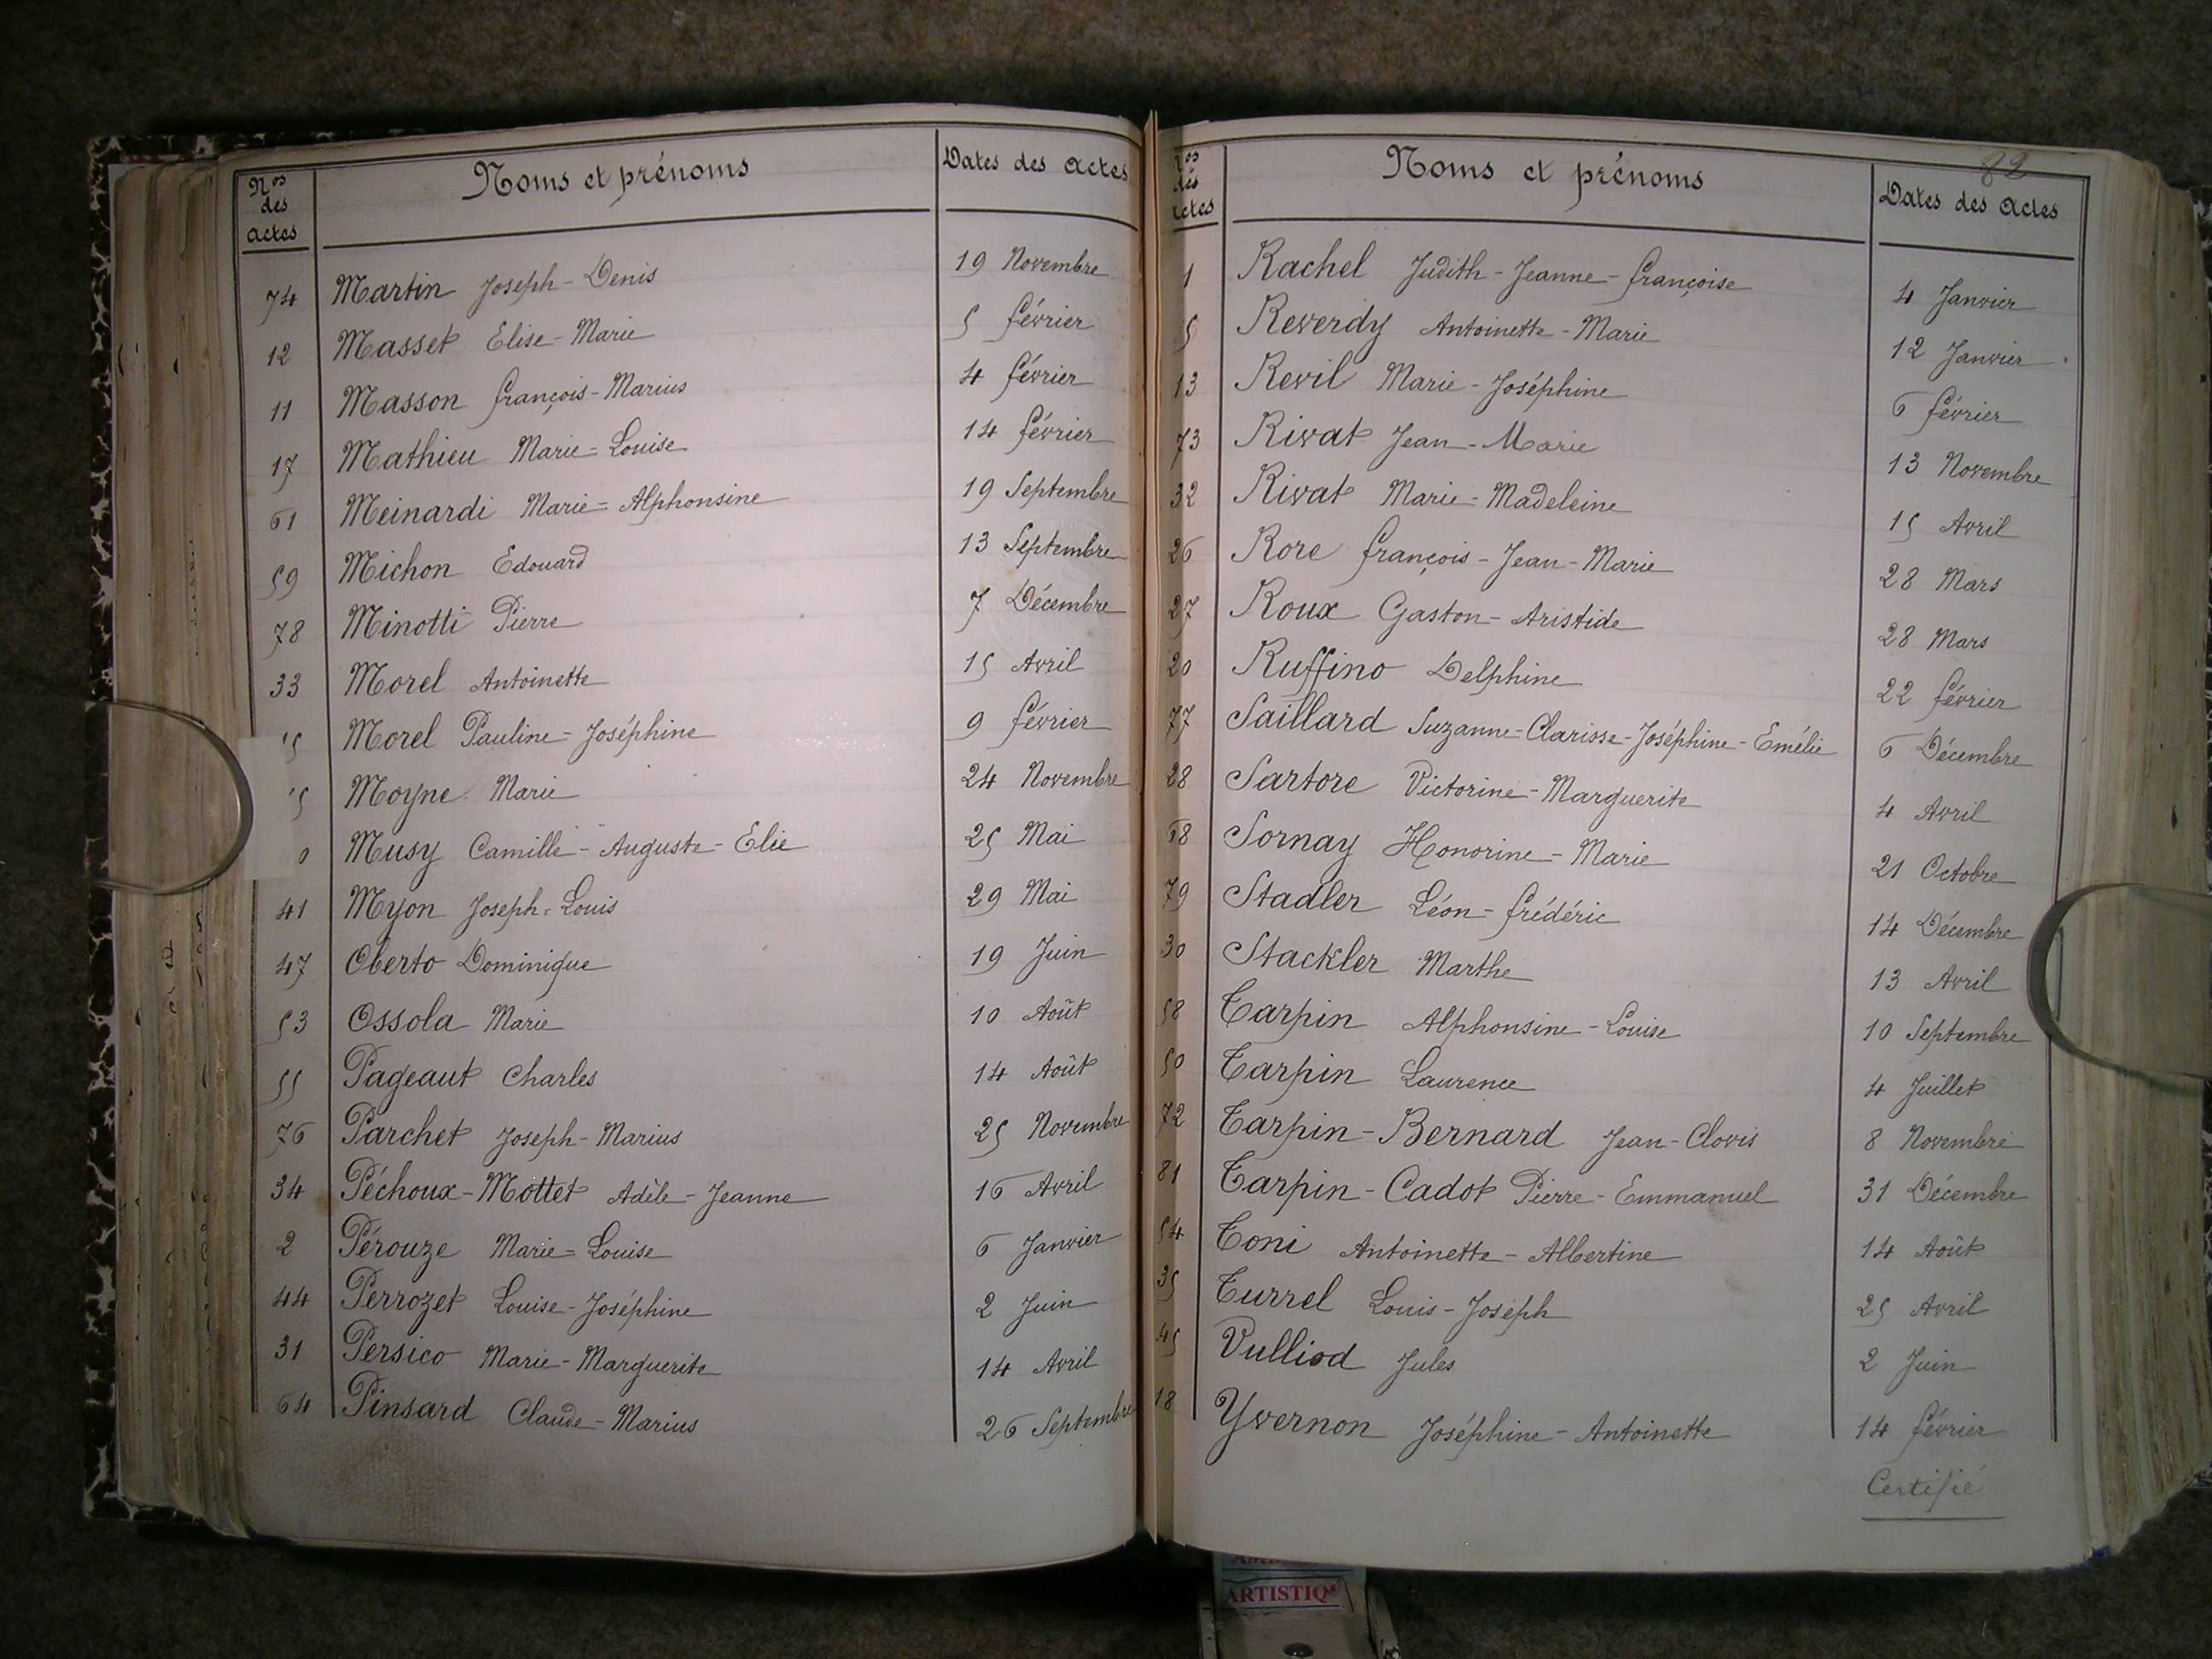 Nos des actes Noms et prénoms Dates des actes
74 Martin Joseph-Denis 19 Novembre
12 Masset Elise-Marie 5 février
11 Masson françois-Marius 4 février
17 Mathieu Marie=Louise 14 février
61 Meinardi Marie=Alphonsine 19 Septembre
59 Michon Edouard 13 Septembre
78 Minotti Pierre 7 Décembre
33 Morel Antoinette 15 Avril
5 Morel Pauline=Joséphine 9 février
5 Moyne Marie 24 Novembre
0 Musy Camille-Auguste-Elie 25 Mai
41 Myon Joseph-Louis 29 Mai
47 Oberto Dominique 19 Juin
53 Ossola Marie 10 Août
55 Pageaut Charles 14 Août
76 Parchet Joseph-Marius 25 Novembre
34 Péchoux-Mottet Adèle-Jeanne 16 Avril
2 Pérouze Marie=Louise 6 Janvier
44 Perrozet Louise-Joséphine 2 Juin
31 Persico Marie-Marguerite 14 Avril
64 Pinsard Claude-Marius 26 Septembre
82
Nos des actes Noms et prénoms Dates des actes
1 Rachel Judith-Jeanne-françoise 4 Janvier
5 Reverdy Antoinette-Marie 12 Janvier
13 Revil Marie-Joséphine 6 février
73 Rivat Jean-Marie 13 Novembre
32 Rivat Marie-Madeleine 15 Avril
26 Rore françois-Jean-Marie 28 Mars
27 Roux Gaston-Aristide 28 Mars
20 Ruffino Delphine 22 février
77 Saillard Suzanne-Clarisse-Joséphine-Emélie 6 Décembre
28 Sartore Victorine-Marguerite 4 Avril
68 Sornay Honorine-Marie 21 Octobre
79 Stadler Léon-frédéric 14 Décembre
30 Stackler Marthe 13 Avril
58 Tarpin Alphonsine-Louise 10 Septembre
50 Tarpin Laurence 4 Juillet
72 Tarpin-Bernard Jean-Clovis 8 Novembre
81 Tarpin-Cadot Pierre-Emmanuel 31 Décembre
54 Toni Antoinette-Albertine 14 Août
35 Turrel Louis-Joseph 25 Avril
45 Vulliod Jules 2 Juin
18 Yvernon Joséphine-Antoinette 14 février
Certifié
ARTISTIQ